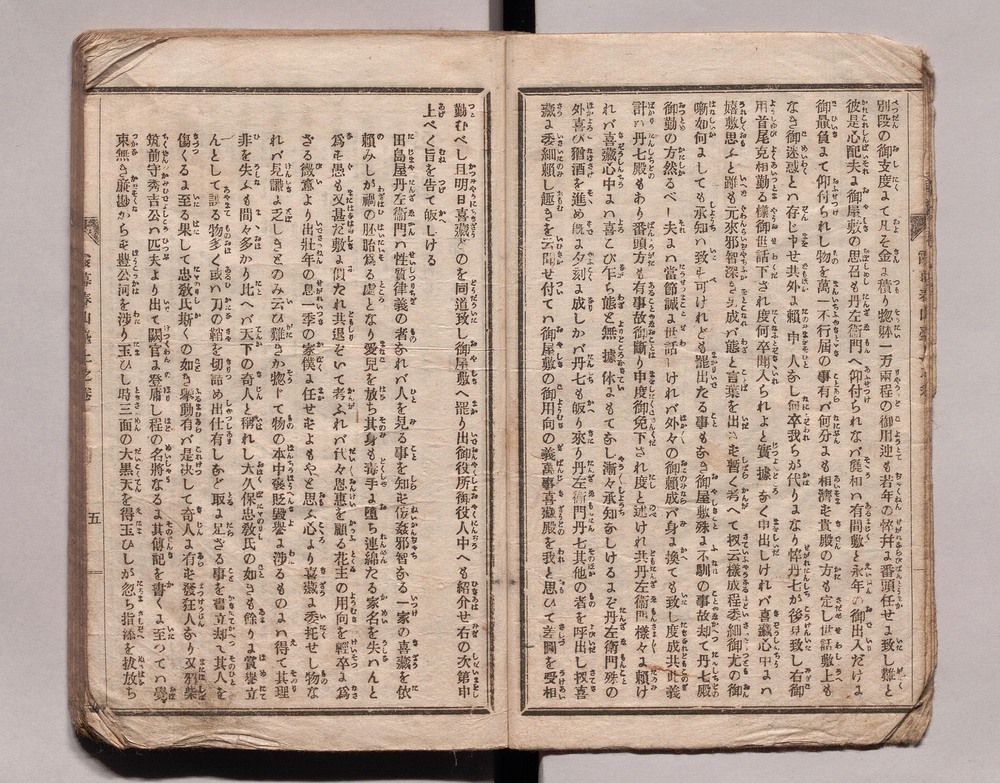 別段の御支度まて凡そ金ま積り惣躰一万兩程の御用迚も若年の忰幷ま番頭任せま致し難と
彼是心配夫ま御屋敷の思召も丹左衞門へ仰付られなバ麁相ハ有間敷と永年の御出入だけま
御最負まて仰付られし物を萬一不行屆の事有バ何分まも相濟ず貴殿の方も定し世話敷上も
なき御迷惑とハ存じ中せ共外ま賴申人なし何卒我らが代りまなり忰丹七が後見致し右御
用首尾克相勤る樣御世話下され度何卒聞入られよと實據なく申出しけれバ喜藏心中まハ
嬉敷思ふと雖も元來邪智深き生成バ態と言葉を出さず暫く考へて扨云樣成程委細御尤の御
噺如何ましても承知ハ致す可けれども罷出たる事もなき御屋敷殊ま不馴の事故却て丹七殿
御勤の方然るべし夫まハ當節誠ま世話しけれバ外々の御賴成バ身ま換ても致し度成共此義
計ハ丹七殿もあり番頭方も有事故御斷り申度御免下され度と述けれ共丹左衞門樣々ま賴け
れバ喜藏心中まハ喜こび乍ら態と無據体まもてなし漸々承知なしけるまぞ丹左衞門殊の
外喜び猶酒を進め旣ま夕刻ま成しかバ丹七も皈り來り丹左衞門丹七其他の者を呼出し扨喜
藏ま委細賴し趣きを云聞せ付てハ御屋敷の御用向の義萬事喜藏殿を我と思ひて差圖を受相
勤むべし且明日喜藏どのを同道致し御屋敷へ罷り出御役所御役人中へも紹介せ右の次第申
上べく旨を告て皈しける
田島屋丹左衞門ハ性質律義の者なれバ人を見る事を知ず侫姦邪智なる一家の喜藏を依
賴みしが禍の胚胎爲る處となり愛兒を放ち其身も毒手ま墮ち連綿たる家名を失ハんと
爲そ愚も又甚だ敷ま似たれ共退ぞいて考ふれバ代々恩惠を顧る花主の用向を輕卒ま爲
ざる微意より出壯年の息一季の家僕ま任せずもやと思ふ心より喜藏ま委托せし物な
れバ見識ま乏しきとのみ云ひ難きか惣して物の本中褒貶毀譽ま渉るものまハ得て其理
非を失ふも間々多かり比へバ天下の奇人と稱れし大久保忠敎氏の如きも餘りま賞譽立
んとして誤る物多く或ハ刀の鞘を切詰め出仕有しなど取るま足ざる事を書立却て其人を
傷くるま至る果して忠敎氏斯くの如き擧動有バ是決して奇人まハ有ず發狂人なり又羽柴
筑前守秀吉公ハ匹夫より出て關官ま登庸し程の名將なるま其傳記を書くま至つてハ覺
束無き廉尠からず豐公河を渉り玉ひし時三面の大黑天を得玉ひしが忽ち指添を拔放ち
五